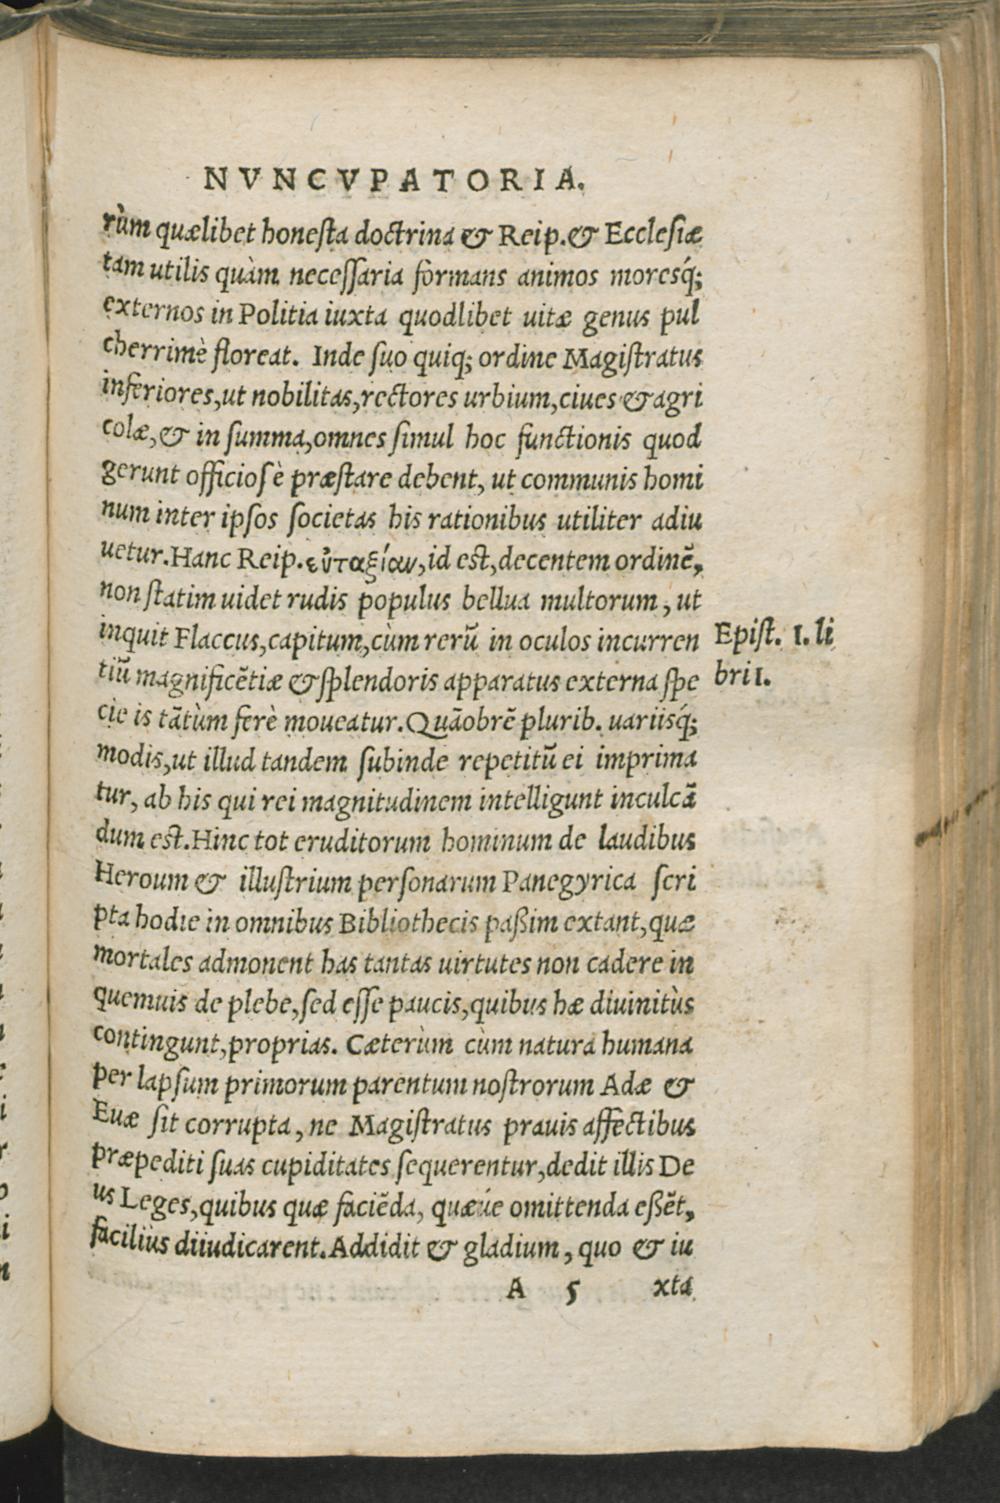 NVNCVPATORIA.
rùm quælibet honesta doctrina & Reip. & Ecclesiæ
tam utilis quàm necessaria formans animos moresq́;
externos in Politia iuxta quodlibet uitæ genus pul
cherrimè floreat. Inde suo quiq; ordine Magistratus
inferiores, ut nobilitas, rectores urbium, ciues & agri
colæ, & in summa, omnes simul hoc functionis quod
gerunt officiosè præstare debent, ut communis homi
num inter ipsos societas his rationibus utiliter adiu
uetur. Hanc Reip. εὐταξίαν, id est, decentem ordinē,
non statim uidet rudis populus bellua multorum, ut
inquit Flaccus, capitum, cùm rerū in oculos incurren
Epist. 1. li
bri 1.
tiū magnificētiæ & splendoris apparatus externa spe
cie is tātùm ferè moueatur. Quāobrē plurib. uariisq́;
modis, ut illud tandem subinde repetitū ei imprima
tur, ab his qui rei magnitudinem intelligunt inculcā
dum est. Hinc tot eruditorum hominum de laudibus
Heroum & illustrium personarum Panegyrica scri
pta hodie in omnibus Bibliothecis paßim extant, quæ
mortales admonent has tantas uirtutes non cadere in
quemuis de plebe, sed esse paucis, quibus hæ diuinitùs
contingunt, proprias. Cæterùm cùm natura humana
per lapsum primorum parentum nostrorum Adæ &
Euæ sit corrupta, ne Magistratus prauis affectibus
præpediti suas cupiditates sequerentur, dedit illis De
us Leges, quibus quæ faciēda, quæúe omittenda eßēt,
faciliùs diiudicarent. Addidit & gladium, quo & iu
A 5 xta